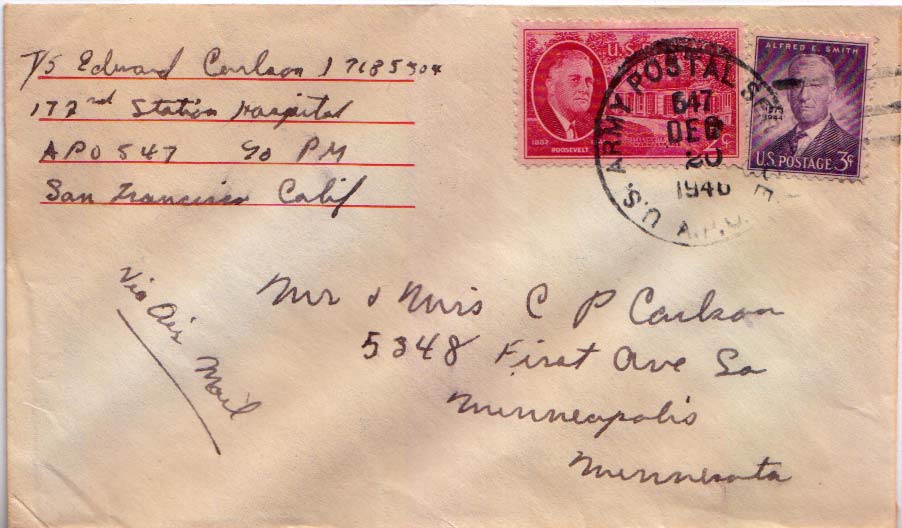 T/5 Edward Carlson 17685504
172nd Station Hospital
APO 547 % PM
San Francisco Calif
U.S.
1882
ROOSEVELT
2¢
ALFRED E. SMITH
1944
U.S. POSTAGE 3¢
U.S. ARMY POSTAL SERVICE
547
DEC
20
1946
A.P.O.
Via Air Mail
Mr & Mrs C P Carlson
5348 First Ave So
Minneapolis
Minnesota